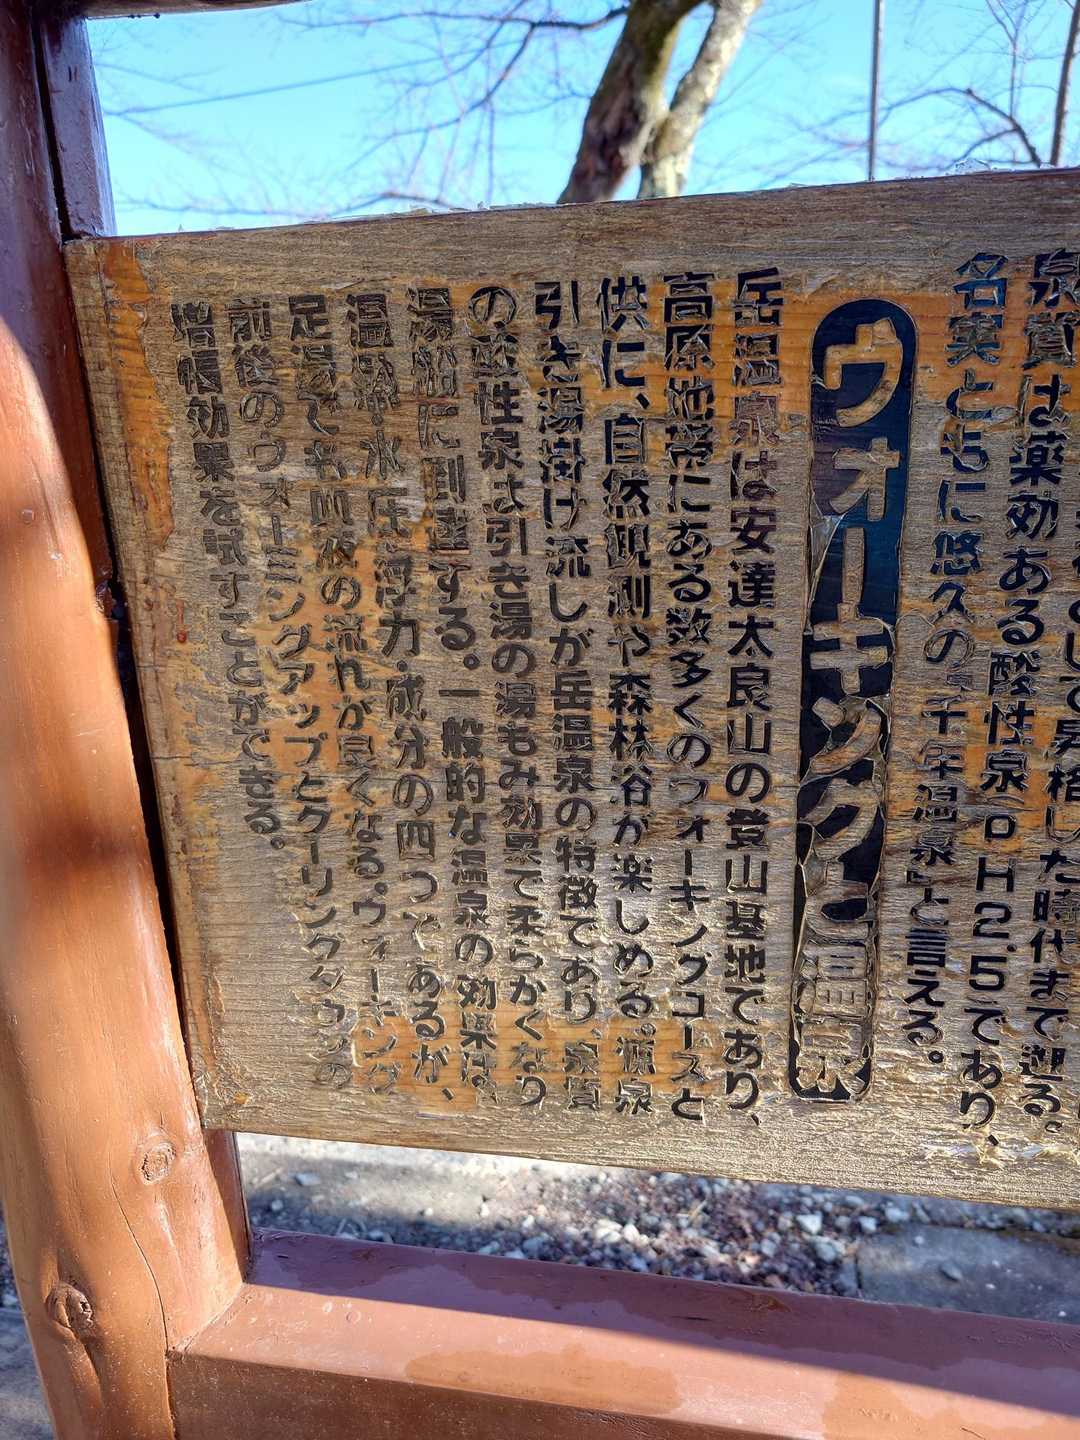 として昇格した時代まで遡る。
泉質は薬効ある酸性泉(pH2.5であり、
名実ともに悠久の『千年温泉』と言える。
ウォーキングと温泉
岳温泉は安達太良山の登山基地であり、
高原地帯にある数多くのウォーキングコースと
供に、自然観測や森林浴が楽しめる。源泉
引き湯掛け流しが岳温泉の特徴であり、泉質
の酸性泉は引き湯の湯もみ効果で柔らかくなり
湯船に到達する。一般的な温泉の効果は、
温熱・水圧・浮力・成分の四つであるが、
足湯でも血液の流れが良くなる。ウォーキング
前後のウォーミングアップとクーリングダウンの
増幅効果を試すことができる。